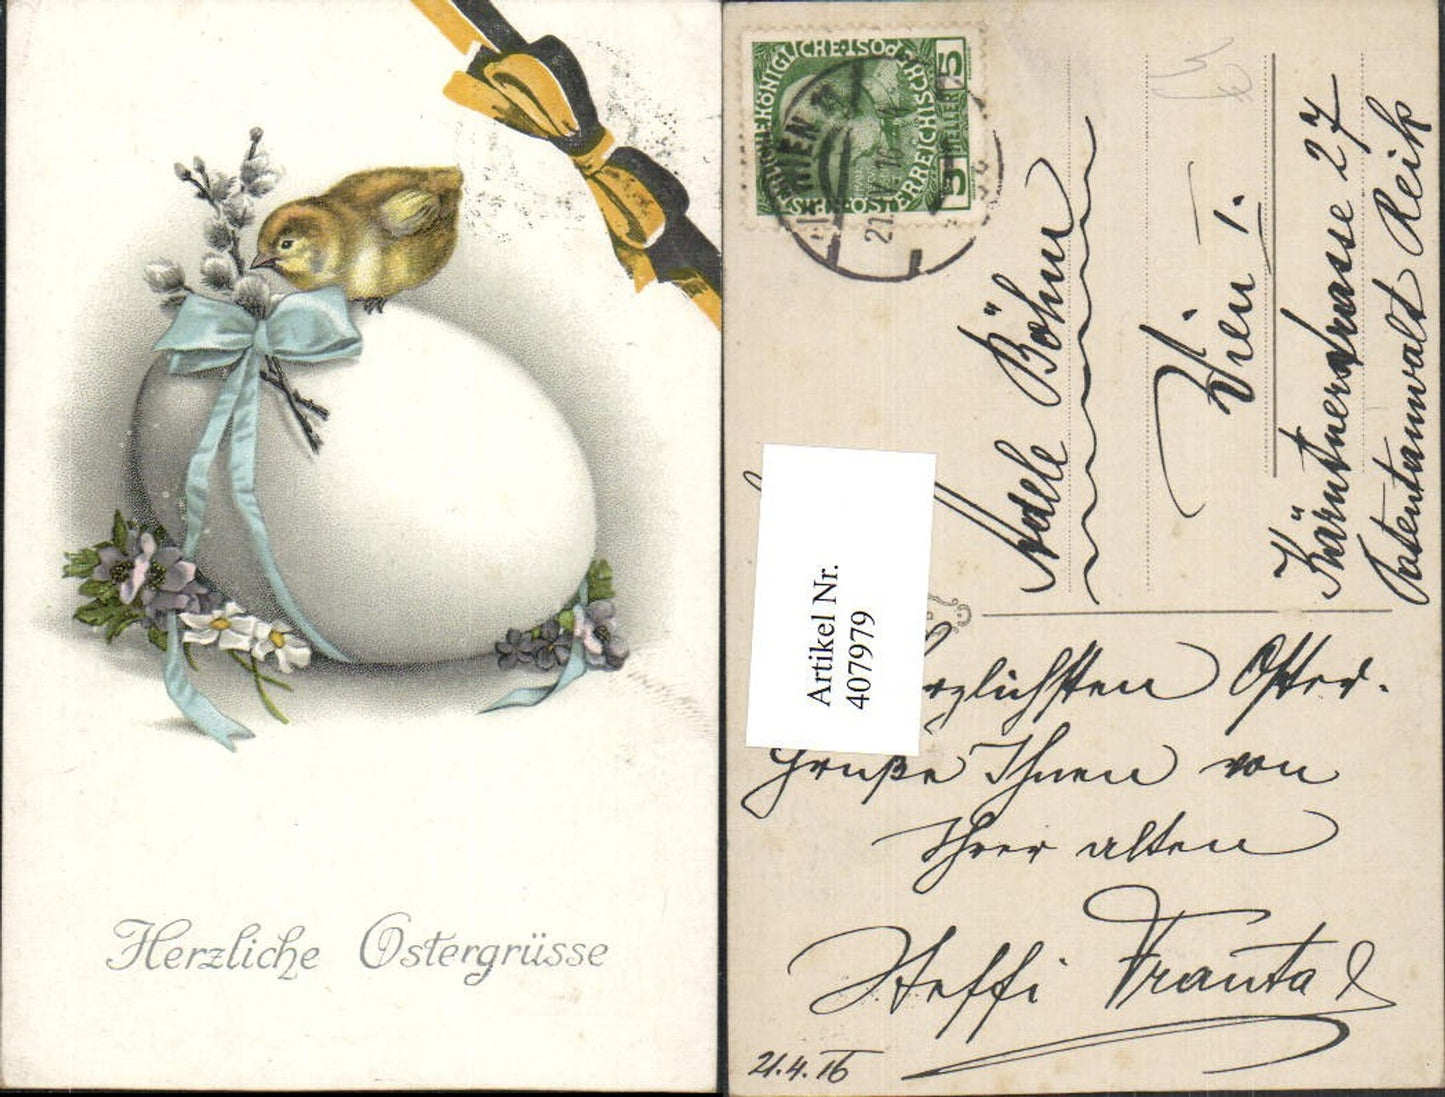 Herzliche Ostergrüsse
KÖNIGLICHE·POST·
ÖSTERREICHISCHE
5 HELLER 5
WIEN
21. IV. 16
Adele Böhm
Wien I.
Kärntnerstrasse 27
Patentanwalt Reik
Artikel Nr.
407979
rzlichsten Oster-
Grüße Ihnen von
Ihrer alten
Steffi Franta
21.4.16